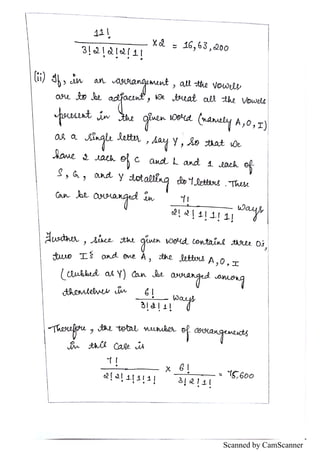 11!
3! 2! 2! 2! 1! × 2 = 16,63,200
(ii) If, in an arrangement, all the vowels
are to be adjacent, we treat all the vowels
present in the given word (namely A, O, I)
as a single letter, say Y, so that we
have 2 each of C and L and 1 each of
S, G, and Y totalling to 7 letters. These
can be arranged in 7!
2! 2! 1! 1! 1! ways
Further, since the given word contains three O's,
two I's and one A, the letters A, O, I
(clubbed as Y) can be arranged among
themselves in 6!
3! 2! 1! ways
Therefore, the total number of arrangements
in this case is
7!
2! 2! 1! 1! 1! × 6!
3! 2! 1! = 75,600
Scanned by CamScanner